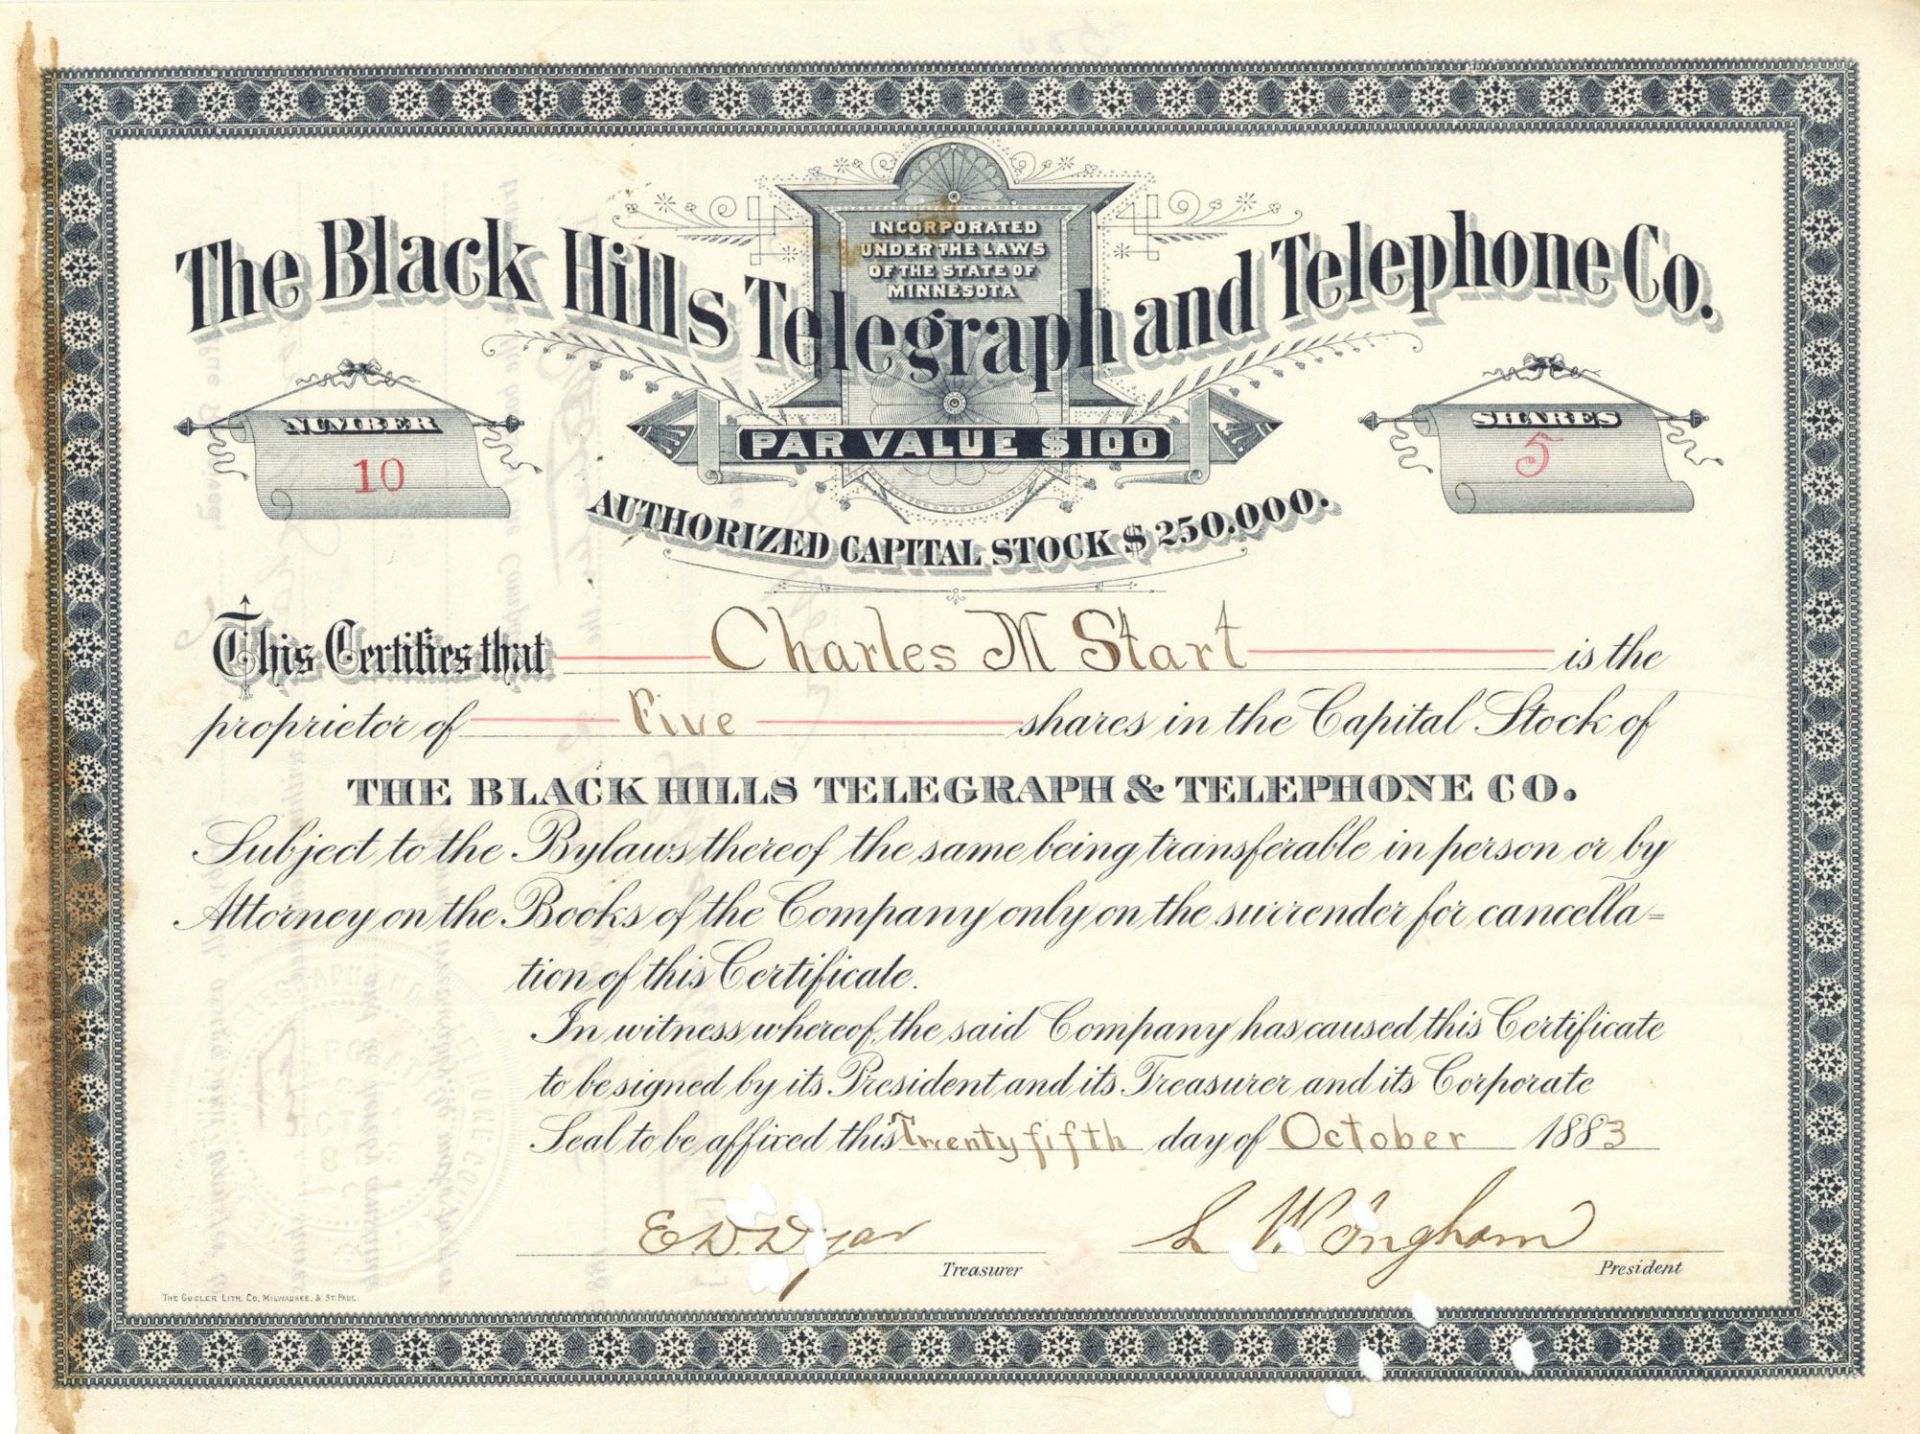 INCORPORATED
UNDER THE LAWS
OF THE STATE OF
MINNESOTA
The Black Hills Telegraph and Telephone Co.
NUMBER
10
PAR VALUE $100
SHARES
5
AUTHORIZED CAPITAL STOCK $250.000.
This Certifies that Charles M Start is the
proprietor of Five shares in the Capital Stock of
THE BLACK HILLS TELEGRAPH & TELEPHONE CO.
Subject to the Bylaws thereof the same being transferable in person or by
Attorney on the Books of the Company only on the surrender for cancella=
tion of this Certificate.
In witness whereof, the said Company has caused this Certificate
to be signed by its President and its Treasurer and its Corporate
Seal to be affixed this Twenty fifth day of October 1883
E D. Dyar
Treasurer
L W. Ingham
President
THE GUGLER LITH. CO. MILWAUKEE. & ST PAUL.